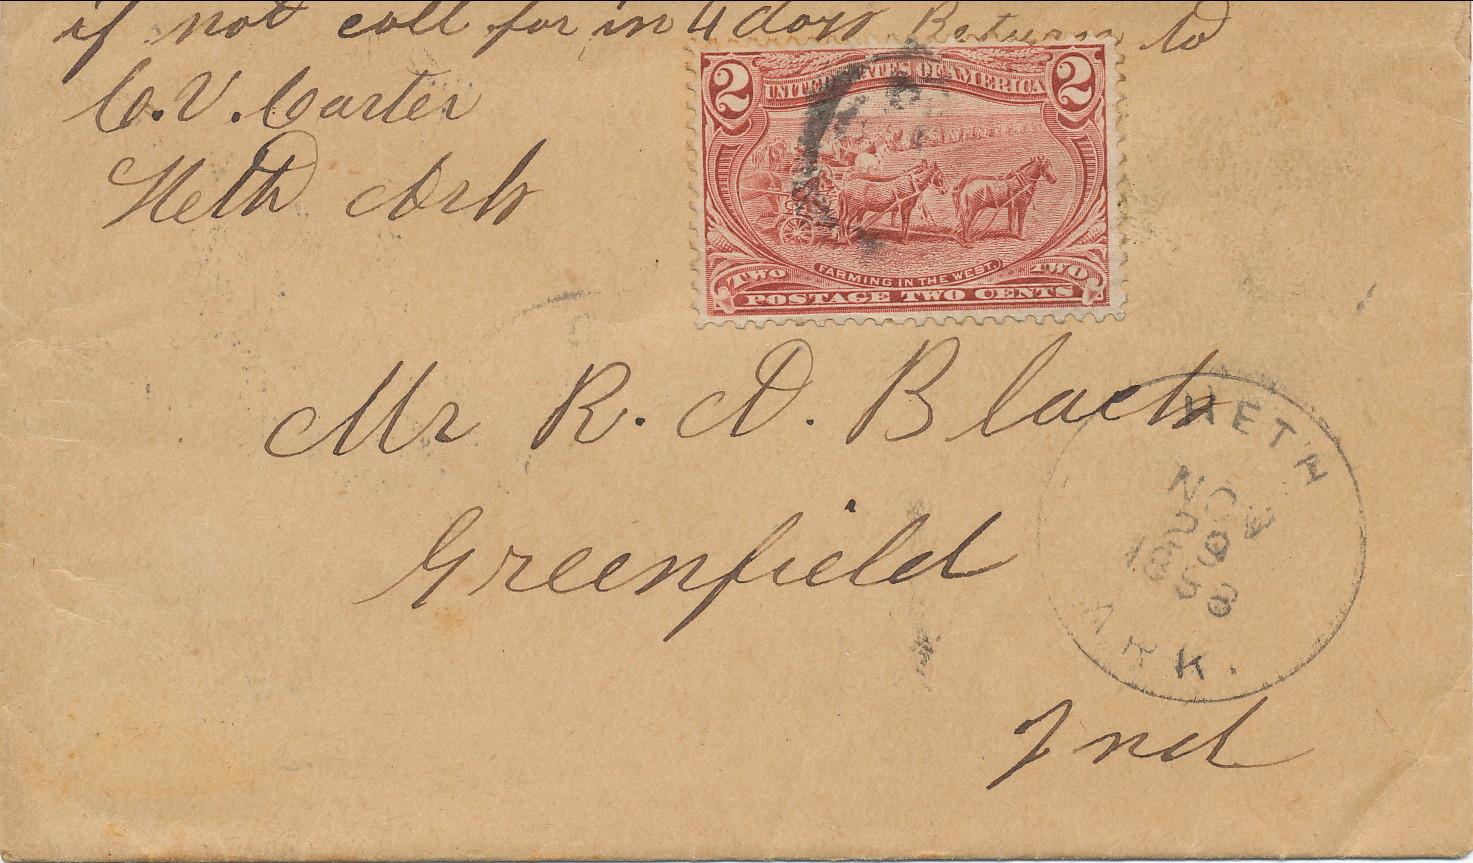 if not call for in 4 days Return to
C. V. Carter
Heth Ark
2 UNITED STATES OF AMERICA 2
FARMING IN THE WEST.
TWO TWO
POSTAGE TWO CENTS
Mr R. D. Black
Greenfield
Ind
HETH
NOV
29
1898
ARK.